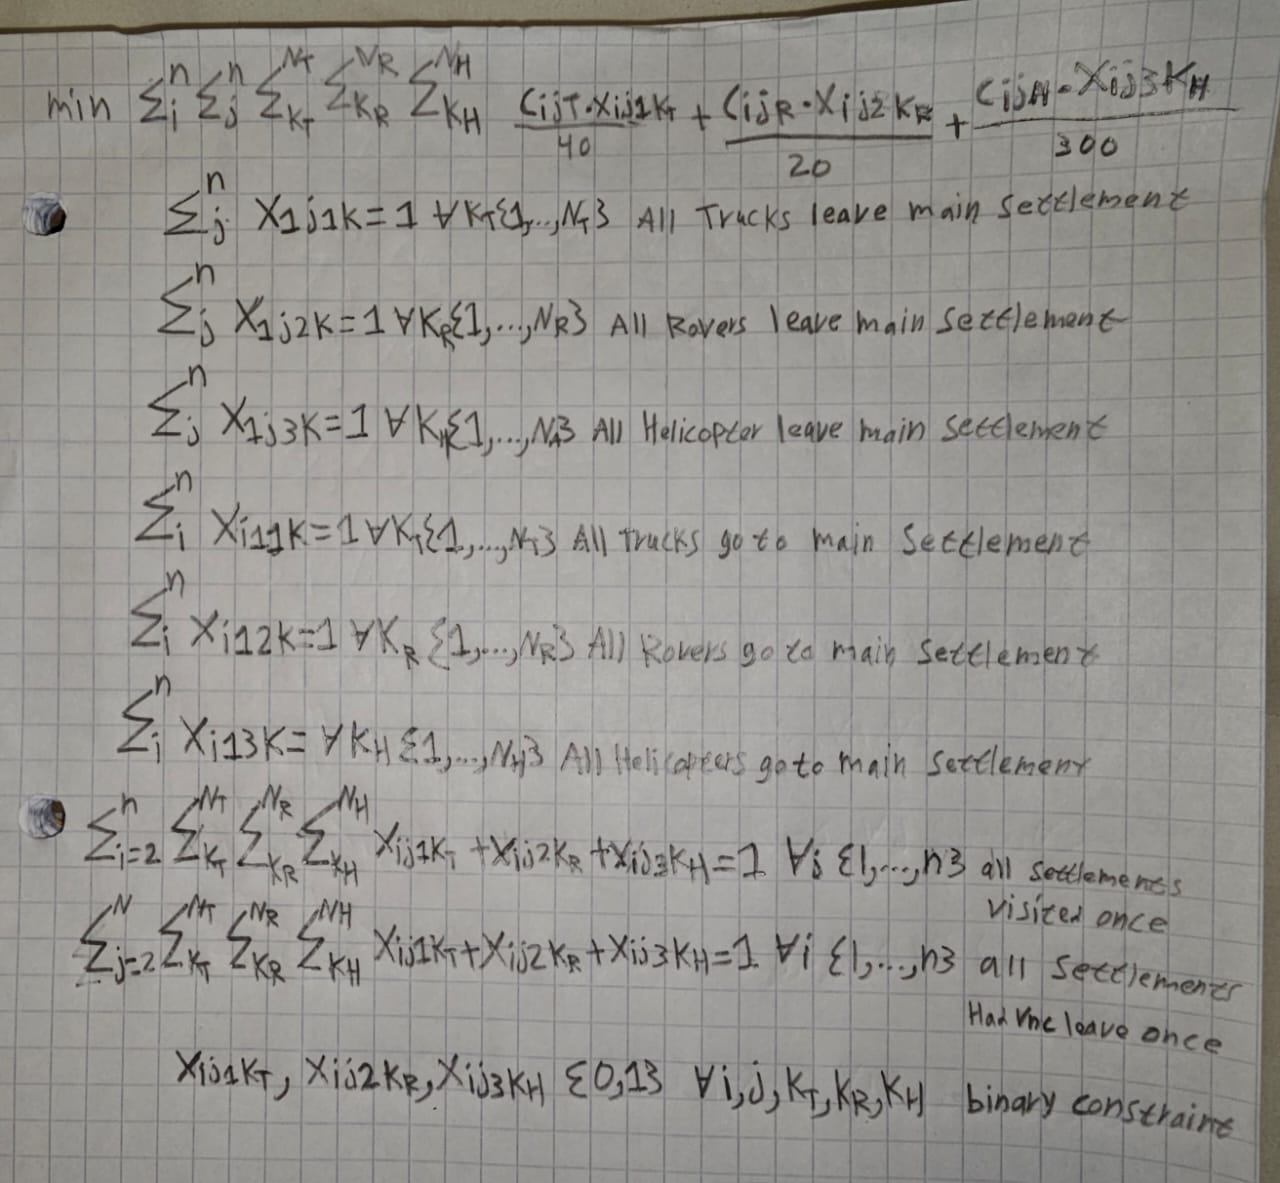 min Σᵢⁿ Σⱼⁿ Σ_{K_T}^{N_T} Σ_{K_R}^{N_R} Σ_{K_H}^{N_H} CijT·Xij1K_T/40 + CijR·Xij2K_R/20 + CijH·Xij3K_H/300
Σⱼⁿ X1j1K=1 ∀K_T{1,...,N_T} All Trucks leave main settlement
Σⱼⁿ X1j2K=1 ∀K_R{1,...,N_R} All Rovers leave main settlement
Σⱼⁿ X1j3K=1 ∀K_H{1,...,N_H} All Helicopter leave main settlement
Σᵢⁿ Xi11K=1 ∀K_T{1,...,N_T} All Trucks go to main settlement
Σᵢⁿ Xi12K=1 ∀K_R{1,...,N_R} All Rovers go to main settlement
Σᵢⁿ Xi13K= ∀K_H{1,...,N_H} All Helicopters go to main settlement
Σ_{i=2}^{n} Σ_{K_T}^{N_T} Σ_{K_R}^{N_R} Σ_{K_H}^{N_H} Xij1K_T + Xij2K_R + Xij3K_H = 1 ∀j {1,...,n} all settlements
visited once
Σ_{j=2}^{N} Σ_{K_T}^{N_T} Σ_{K_R}^{N_R} Σ_{K_H}^{N_H} Xij1K_T + Xij2K_R + Xij3K_H = 1 ∀i {1,...,n} all settlements
Had leave once
Xij1K_T, Xij2K_R, Xij3K_H {0,1} ∀i,j,K_T,K_R,K_H binary constraint